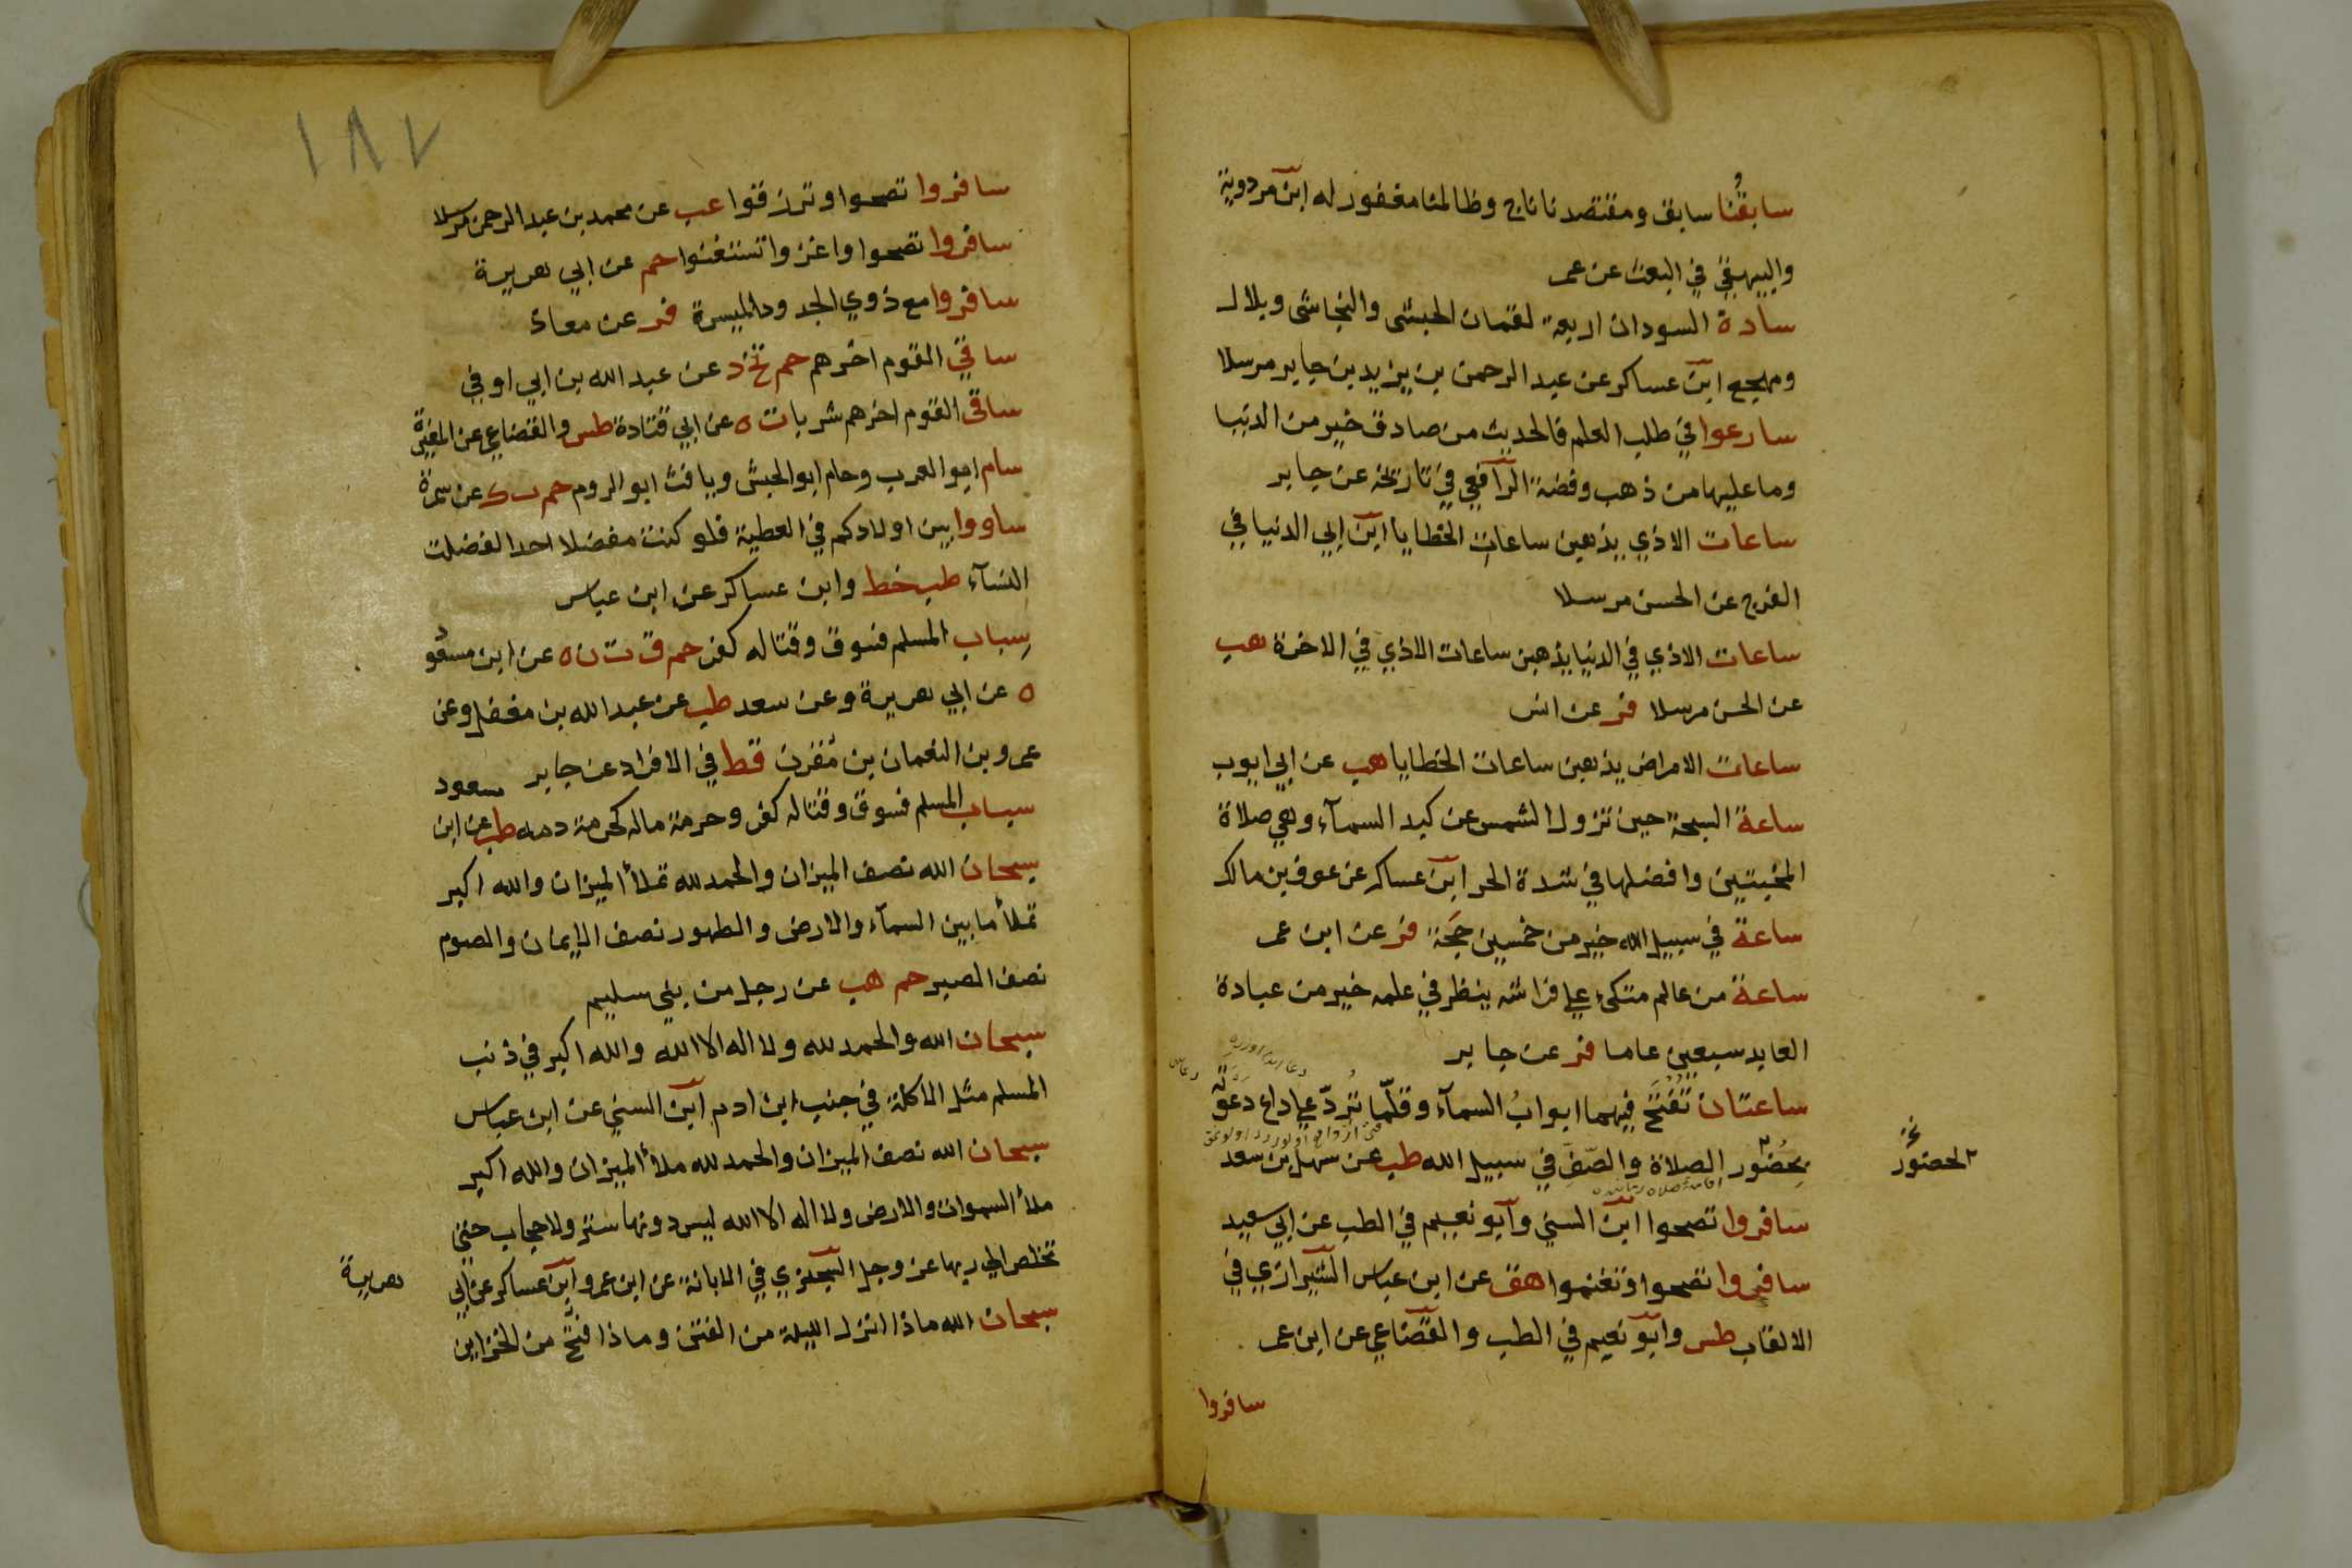 سابقُنا سابق ومقتصدنا ناج وظالمنا مغفور له ابن مردوية
والبيهقي في البعث عن عمر
سادة السودان اربعة لقمان الحبشى والنجاشى وبلال
ومهجع ابن عساكر عن عبد الرحمن بن يزيد بن جابر مرسلا
سارعوا في طلب العلم فالحديث من صادق خير من الدنيا
وما عليها من ذهب وفضة الرافعي في تاريخه عن جابر
ساعات الاذي يذهبن ساعات الخطايا ابن ابي الدنيا في
الفرج عن الحسن مرسلا
ساعات الاذي في الدنيا يذهبن ساعات الاذي في الاخرة هب
عن الحسن مرسلا فر عن انس
ساعات الامراض يذهبن ساعات الخطايا هب عن ابي ايوب
ساعة السبحة حين تزول الشمس عن كبد السمآء وهي صلاة
المخبتين وافضلها في شدة الحر ابن عساكر عن عوف بن مالك
ساعة في سبيل الله خير من خمسين حجة فر عن ابن عمر
ساعة من عالم متكىء علي فراشه ينظر في علمه خير من عبادة
العابد سبعين عاما فر عن جابر
ساعتان تُفتَح فيهما ابوابُ السمآء وقلّما تُردّ علي داع دعوتُه
بحضُور الصلاة والصّفِّ في سبيل الله طب عن سهل بن سعد
لحضور نخ
سافروا تصحوا ابن السني وابو نعيم في الطب عن ابي سعيد
سافروا تصحوا وتغنموا هق عن ابن عباس الشيرازي في
الالقاب طس وابو نعيم في الطب والقضاعي عن ابن عمر
سافروا
١٨٧
سافروا تصحوا وترزقوا عب عن محمد بن عبد الرحمن مرسلا
سافروا تصحوا واغزوا تستغنوا حم عن ابي هريرة
سافروا مع ذوي الجد وذا الميسرة فر عن معاذ
ساقي القوم اخرهم حم تخ د عن عبد الله بن ابي اوفي
ساقى القوم اخرهم شربا ت ه عن ابي قتادة طس والقضاعي عن المغيرة
سام ابو العرب وحام ابو الحبش ويافث ابو الروم حم ت ك عن سمرة
ساووا بين اولادكم في العطية فلو كنت مفضلا احدا لفضلت
النسآء طب خط وابن عساكر عن ابن عباس
سِباب المسلم فسوق وقتاله كفر حم ق ت ن ه عن ابن مسعود
ه عن ابي هريرة وعن سعد طب عن عبد الله بن مغفل وعن
عمرو بن النعمان بن مُقرن قط في الافراد عن جابر
سباب المسلم فسوق وقتاله كفر وحرمة ماله كحرمة دمه طب عن ابن مسعود
سبحان الله نصف الميزان والحمد لله تملأ الميزان والله اكبر
تملأ ما بين السمآء والارض والطهور نصف الإيمان والصوم
نصف الصبر حم هب عن رجل من بني سليم
سبحان الله والحمد لله ولا اله الا الله والله اكبر في ذنب
المسلم مثل الاكلة في جنب ابن ادم ابن السني عن ابن عباس
سبحان الله نصف الميزان والحمد لله ملأ الميزان والله اكبر
ملأ السموات والارض ولا اله الا الله ليس دونها ستر ولا حجاب حتى
تخلص الي ربها عز وجل السجزي في الابانة عن ابن عمرو ابن عساكر عن ابي هريرة
سبحان الله ماذا انزل الليلة من الفتن وماذا فتح من الخزاين